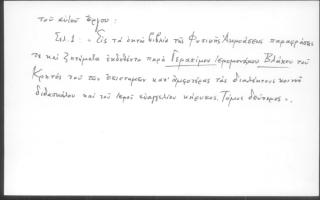 τοῦ αὐτοῦ ἔργου:
Σελ. 1: « Εἰς τὰ ὀκτὼ βιβλία τῆς Φυσικῆς Ἀκροάσεως παραφράσεις
τε καὶ ζητήματα ἐκδοθέντα παρὰ Γερασίμου ἱερομονάχου Βλάχου τοῦ
Κρητὸς τοῦ τῶν ἐπιστημῶν κατ' ἀμφοτέρας τὰς διαλέκτους κοινοῦ
διδασκάλου καὶ τοῦ ἱεροῦ εὐαγγελίου κήρυκος. Τόμος δεύτερος ».